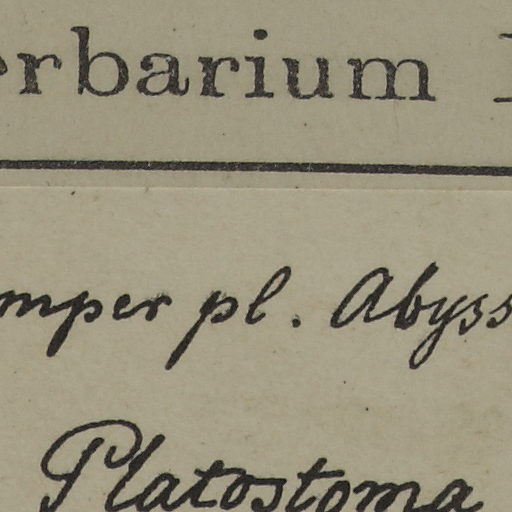 erbarium
mper pl. Abyss
Platostoma